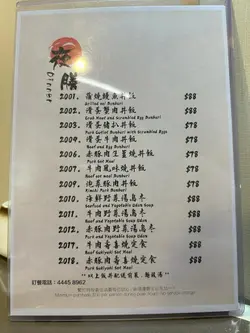 夜膳
Dinner
2001. 蒲燒鰻魚丼飯 $88
Grilled eel Donburi
2002. 滑蛋蟹肉丼飯 $88
Crab Meat and Scrambled Egg Donburi
2003. 滑蛋豬扒丼飯 $78
Pork Cutlet Donburi with Scrambled Eggs
2004. 滑蛋牛肉丼飯 $78
Beef and Egg Donburi
2006. 赤豚肉生薑燒丼飯 $78
Pork Set Meal
2007. 牛肉風味燒丼飯 $78
Beef Set Meal
2009. 泡菜豚肉丼飯 $78
Kimchi Pork Donburi
2010. 海鮮野菜湯烏冬 $88
Seafood and Vegetable Udon Soup
2011. 牛肉野菜湯烏冬 $88
Beef and Vegetable Udon Soup
2012. 赤豚肉野菜湯烏冬 $88
Pork and Vegetable Udon Soup
2017. 牛肉壽喜燒定食 $88
Beef Sukiyaki Set Meal
2018. 赤豚肉壽喜燒定食 $88
Pork Sukiyaki Set Meal
**以上飯弄配送前菜、麵豉湯**
訂餐電話：4445 8962